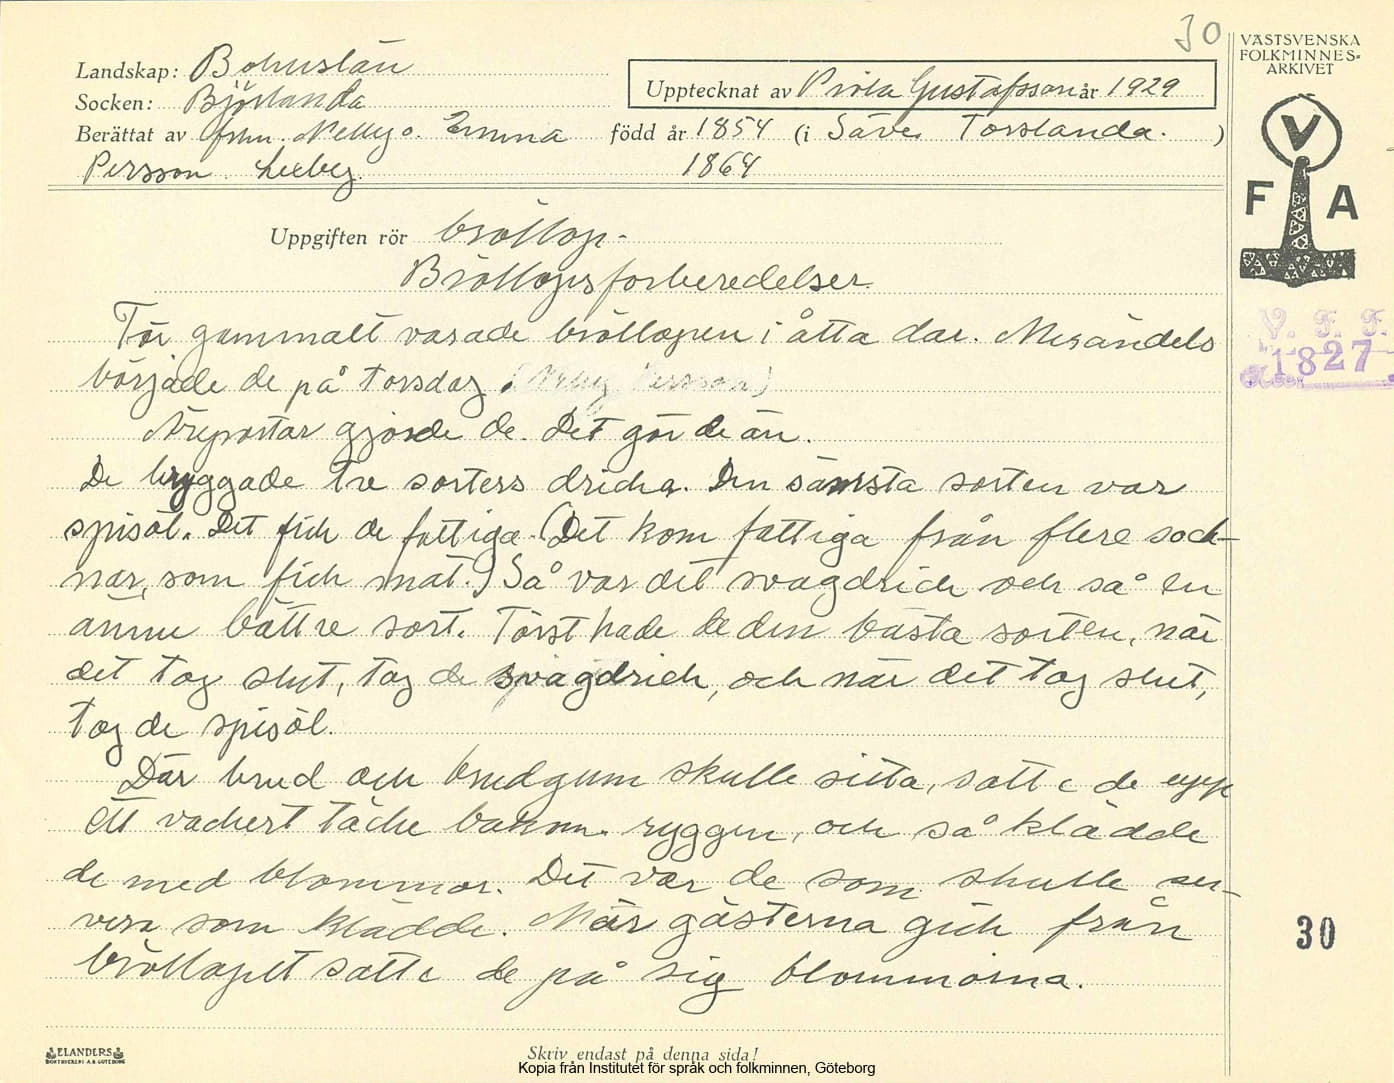 30
VÄSTSVENSKA
FOLKMINNES-
ARKIVET
Landskap: Bohuslän
Socken: Björlanda
Upptecknat av Gustafsson år 1929
Berättat av Nelly o. Emma född år 1854 (i Säve, Torslanda. )
Persson 1864
V
F A
Uppgiften rör bröllop.
Bröllopsförberedelser
För gammalt varade bröllopen i åtta dar. Mesändels
började de på torsdag. (Nelly Persson)
Äreportar gjorde de. Det gör de än.
V. F. F.
1827
De bryggade tre sorters dricka. Den sämsta sorten var
spisöl. Det fick de fattiga. (Det kom fattiga från flere sock-
nar, som fick mat.) Så var det svagdrick och så en
ännu bättre sort. Först hade de den bästa sorten, när
det tog slut, tog de svagdrick, och när det tog slut,
tog de spisöl.
Där brud och brudgum skulle sitta, satte de upp
ett vackert täcke bakom ryggen, och så klädde
de med blommor. Det var de som skulle ser-
vera som klädde. När gästerna gick från
bröllopet satte de på sig blommorna.
30
ELANDERS
BOKTRYCKERI A.B. GÖTEBORG
Skriv endast på denna sida!
Kopia från Institutet för språk och folkminnen, Göteborg